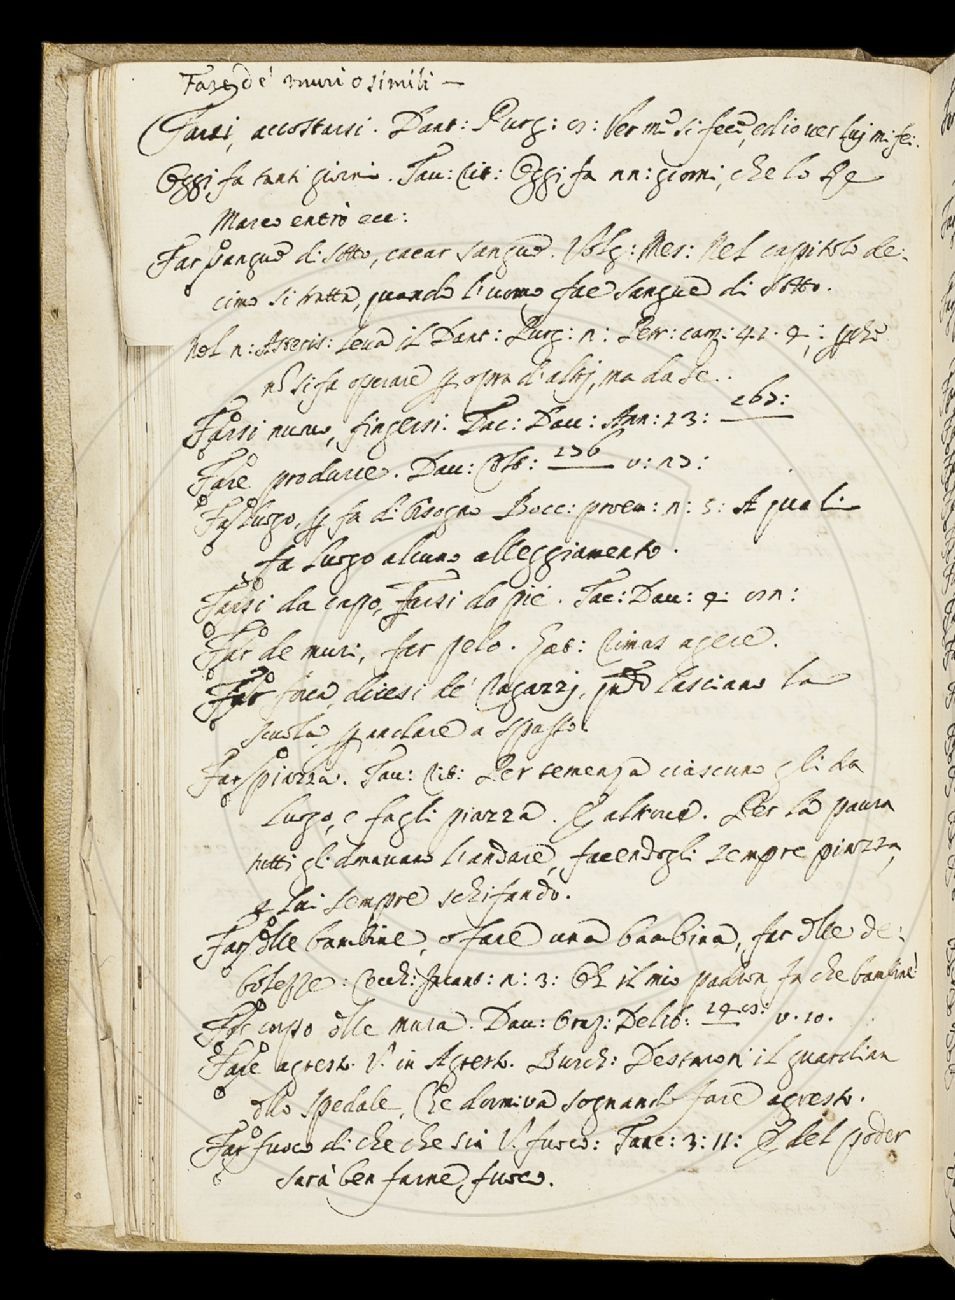 Fare de' muri o simili —
Farsi, accostarsi. Dant: Purg: 8: Ver me si fece, ed io ver lui mi fei.
Oggi fa tanti giorni. Tau: Rit: Oggi fa nn: giorni, che lo Re
Marco entrò ecc:
Far sangue di sotto, cacar sangue. Volg: Mes: Nel capitolo de:
cimo si tratta, quando l'uomo fae sangue di sotto.
Nel n:
si fa operare ma da se.
Farsi nuovo, fingersi. Tac: Dav: Ann: 13: 167:
Fare produrre. Dav: Colt: 176 v: 17:
Far luogo, fa di bisogno Bocc: proem: n: 5: A quali
fa luogo alcuno alleggiamento.
Farsi da capo, Farsi da piè. Tac: Dav: 4:
Far de muri, far pelo.
Far forca, dicesi de' Ragazzi, qndo lasciano la
scuola, p andare a spasso.
Far piazza. Tau: Rit: Per temenza ciascuno gli da
luogo, e fagli piazza. E altrove. Per la paura
tutti gli donavano l'andare, facendogli sempre piazza,
e lui sempre schifando.
Far dlle bambine, o fare una bambina, far dlle de:
bolezze: Cecch: Incant: n: 3: Oh il mio padron fa che bambine
Far corpo dlle mura. Dav: Oraz: Delib: 148: v. 10.
Fare agresto. V. in Agresto. Burch: Destavon il guardian
dllo spedale, Che dormiva sognando fare agresto.
Far fuoco di che che sia V. fuoco: Tanc: 3: 11: E del poder
sarà ben farne fuoco.